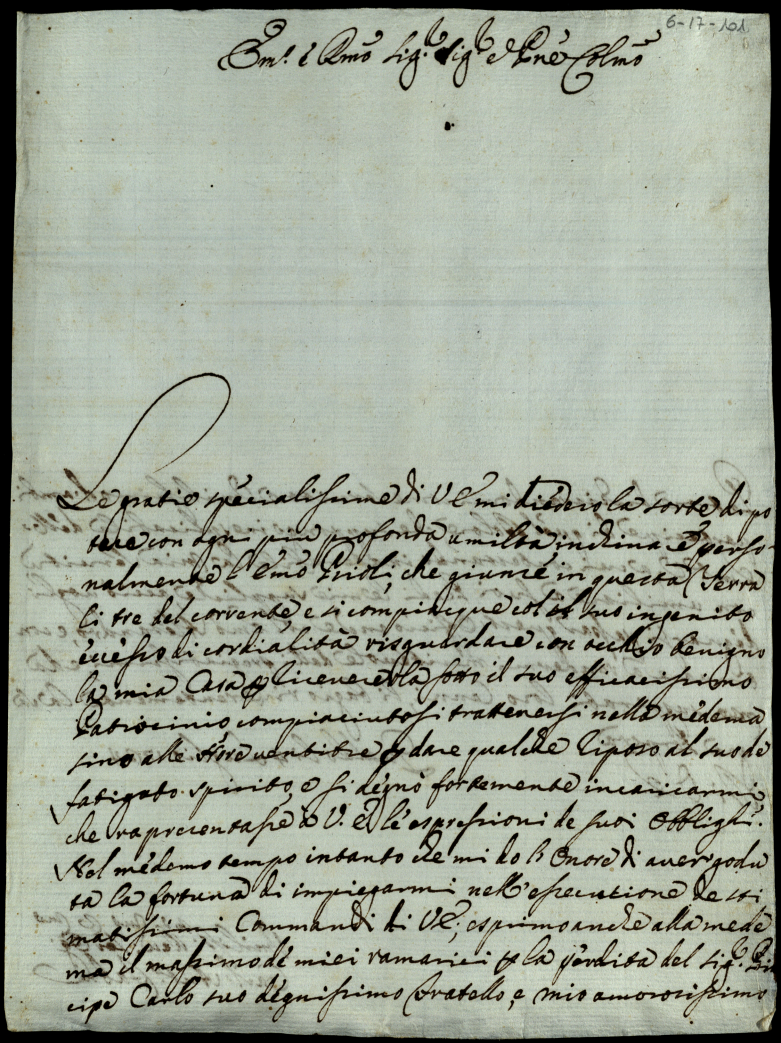 6-17-101
Em.o e Rmo Sig.r Sig.r e Pne Colmo
Le gratie specialissime di V E mi diedero la sorte di po
tere con ogni piu profonda umiltà inchinare perso
nalmente l'Emo Prioli, che giunse in questa Terra
li tre del corrente, e si compiacque col suo ingenito
ecesso di cordialità risguardare con occhio benigno
la mia Casa, e ricevere la sotto il suo efficacissimo
Patrocinio compiaciutosi trattenersi nella medema
sino alle Hore ventitre p dare qualche riposo al suo de
fatigato spirito, e si degnò fortemente incaricarmi
che rapresentassi a V. E. le espressioni de suoi Obblighi.
Nel medemo tempo intanto che mi do l'Onore di aver godu
ta la fortuna di impiegarmi nell'essecutione de sti
matissimi Commandi di V E; esprimo anche alla mede
ma il massimo de miei ramarici p la perdita del Sig.r Prin
cipe Carlo suo degnissimo Fratello, e mio amorosissimo